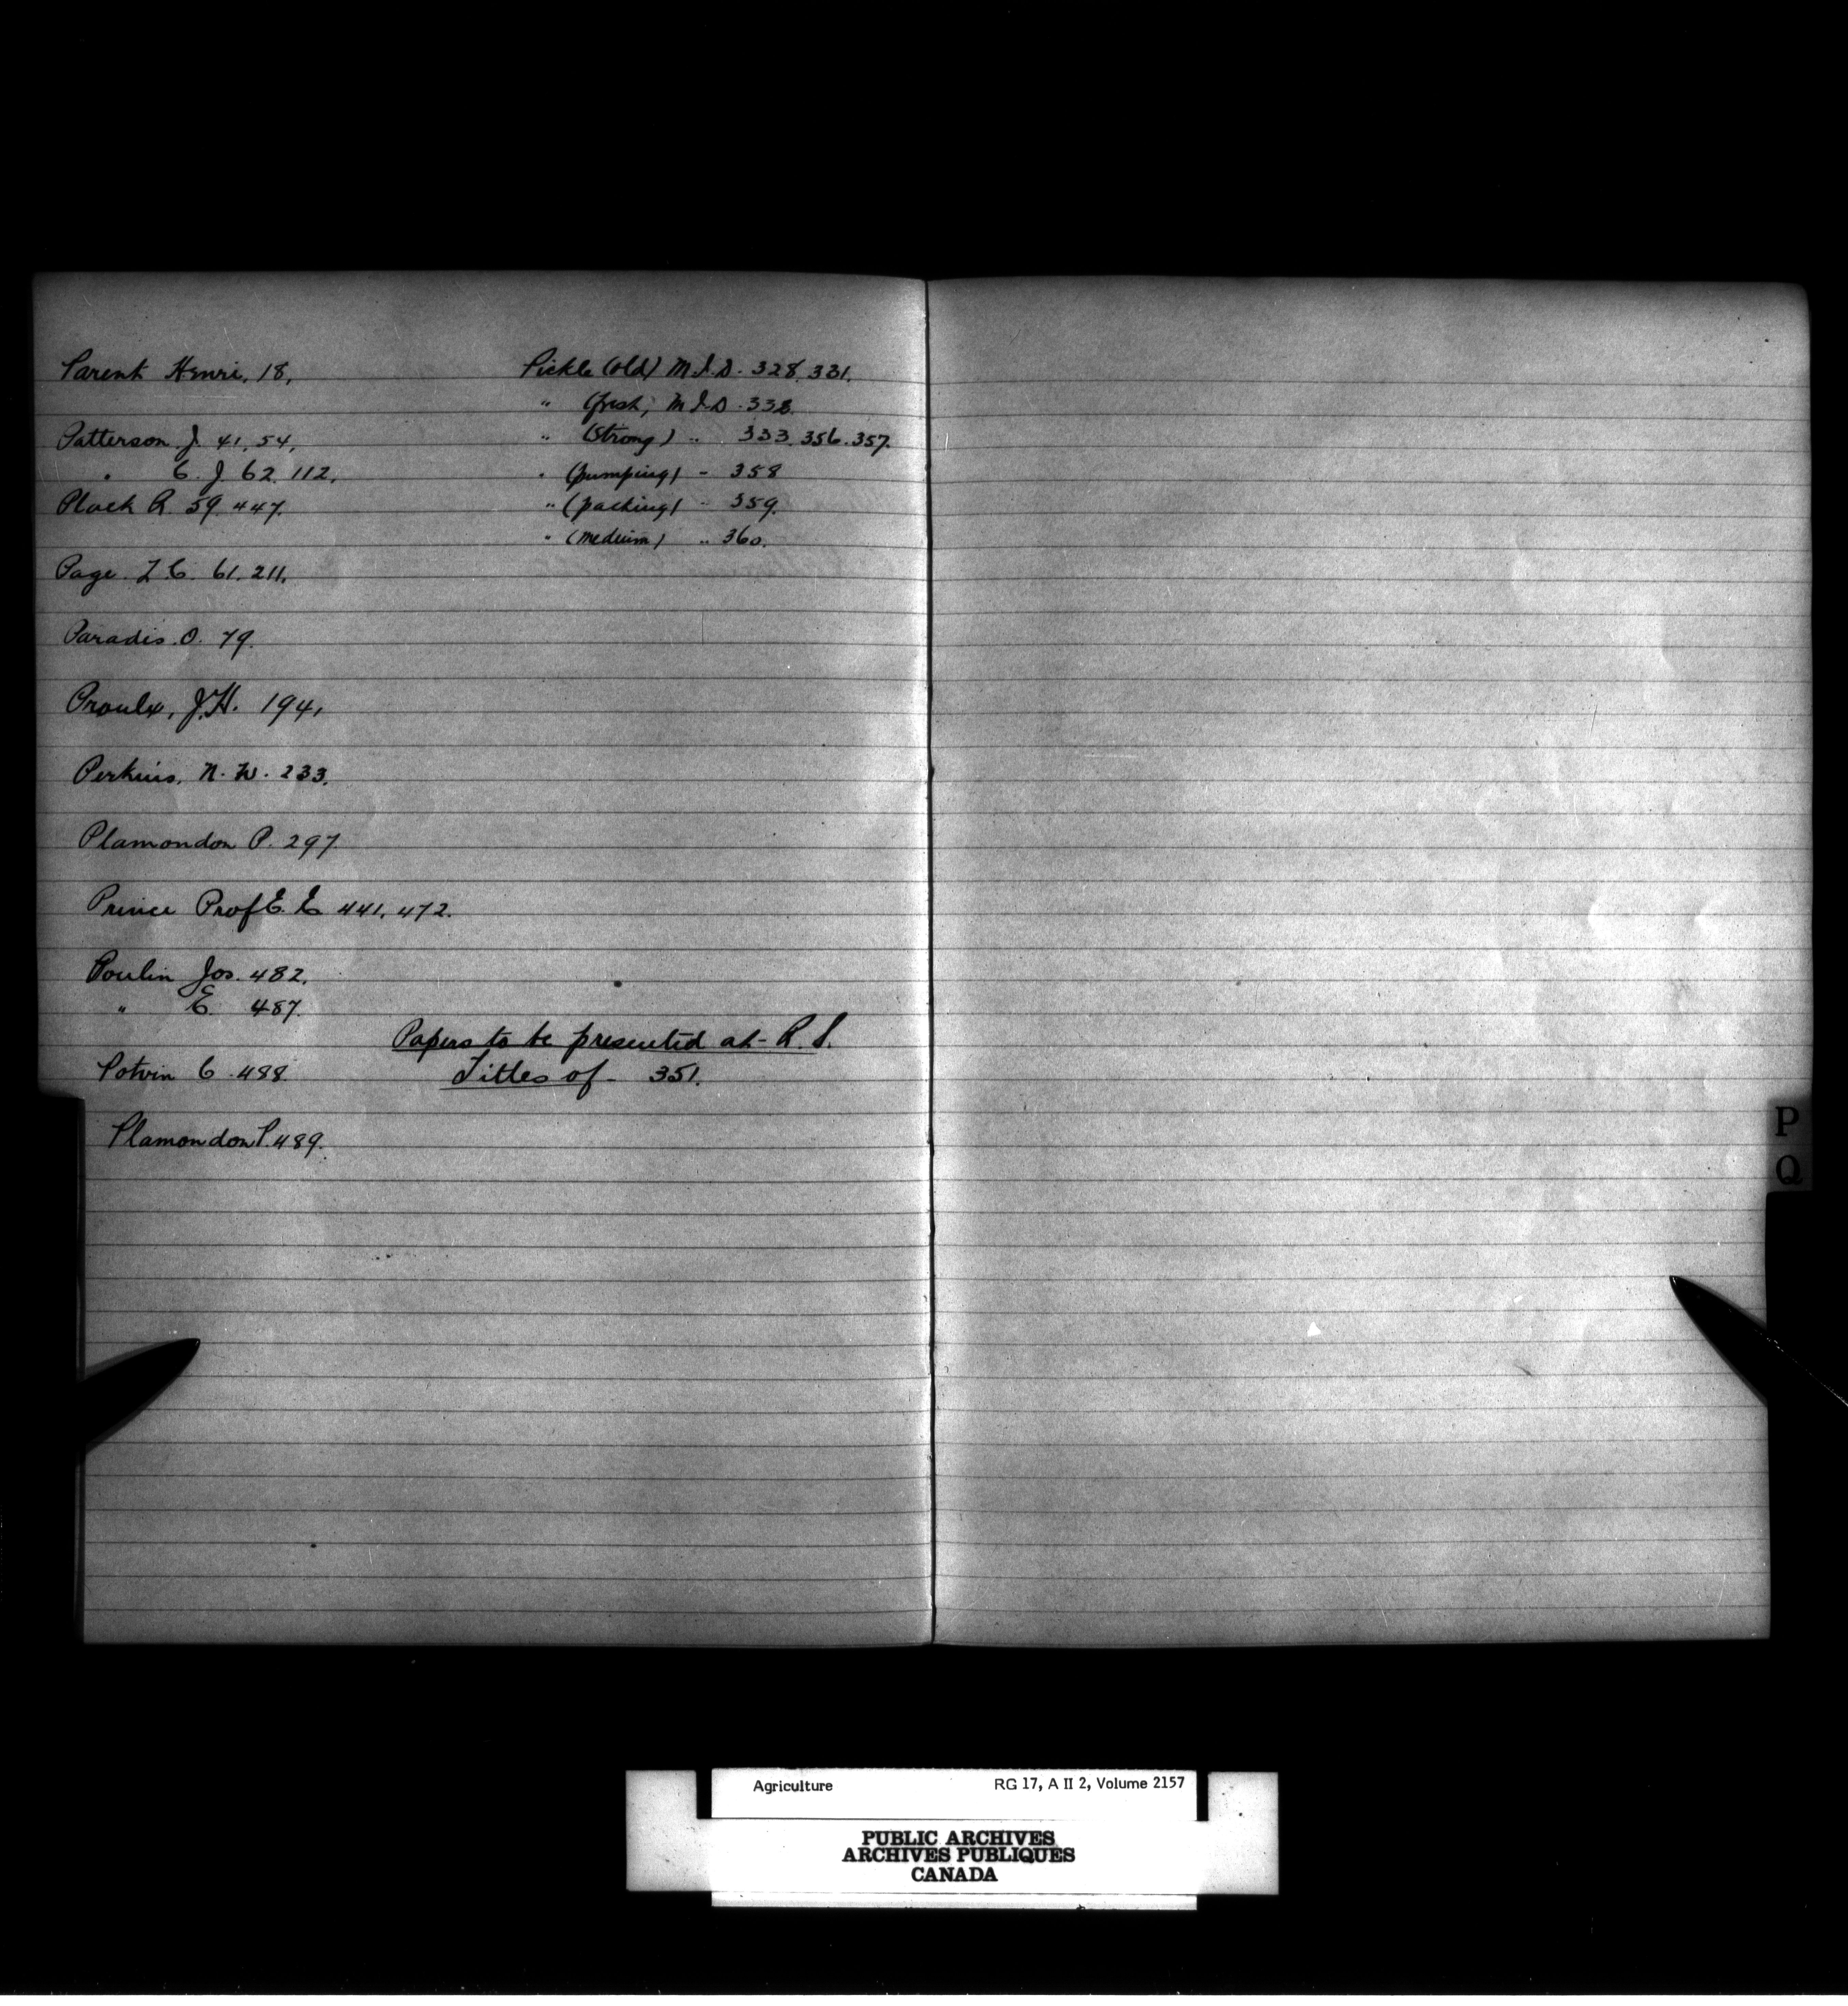 Parent Henri, 18,
Patterson J. 41, 54,
" C. J 62. 112.
Plock R. 59. 447.
Page. L. C. 61. 211.
Paradis. O. 79.
Proulx, J.H. 194,
Perkins, N. W. 233.
Plamondon P. 297
Prince Prof E. E 441, 472.
Poulin Jos. 482.
" E. 487.
Potvin C. 488.
Plamondon P. 489.
Pickle (old) M.I.D. 328. 331.
" (fresh) M I D. 332.
" (Strong) " 333. 356. 357.
" (pumping) - 358
" (packing) - 359.
" (medium) " 360.
Papers to be presented at - R. S.
Titles of - 351.
P
Q
Agriculture RG 17, A II 2, Volume 2157
PUBLIC ARCHIVES
ARCHIVES PUBLIQUES
CANADA